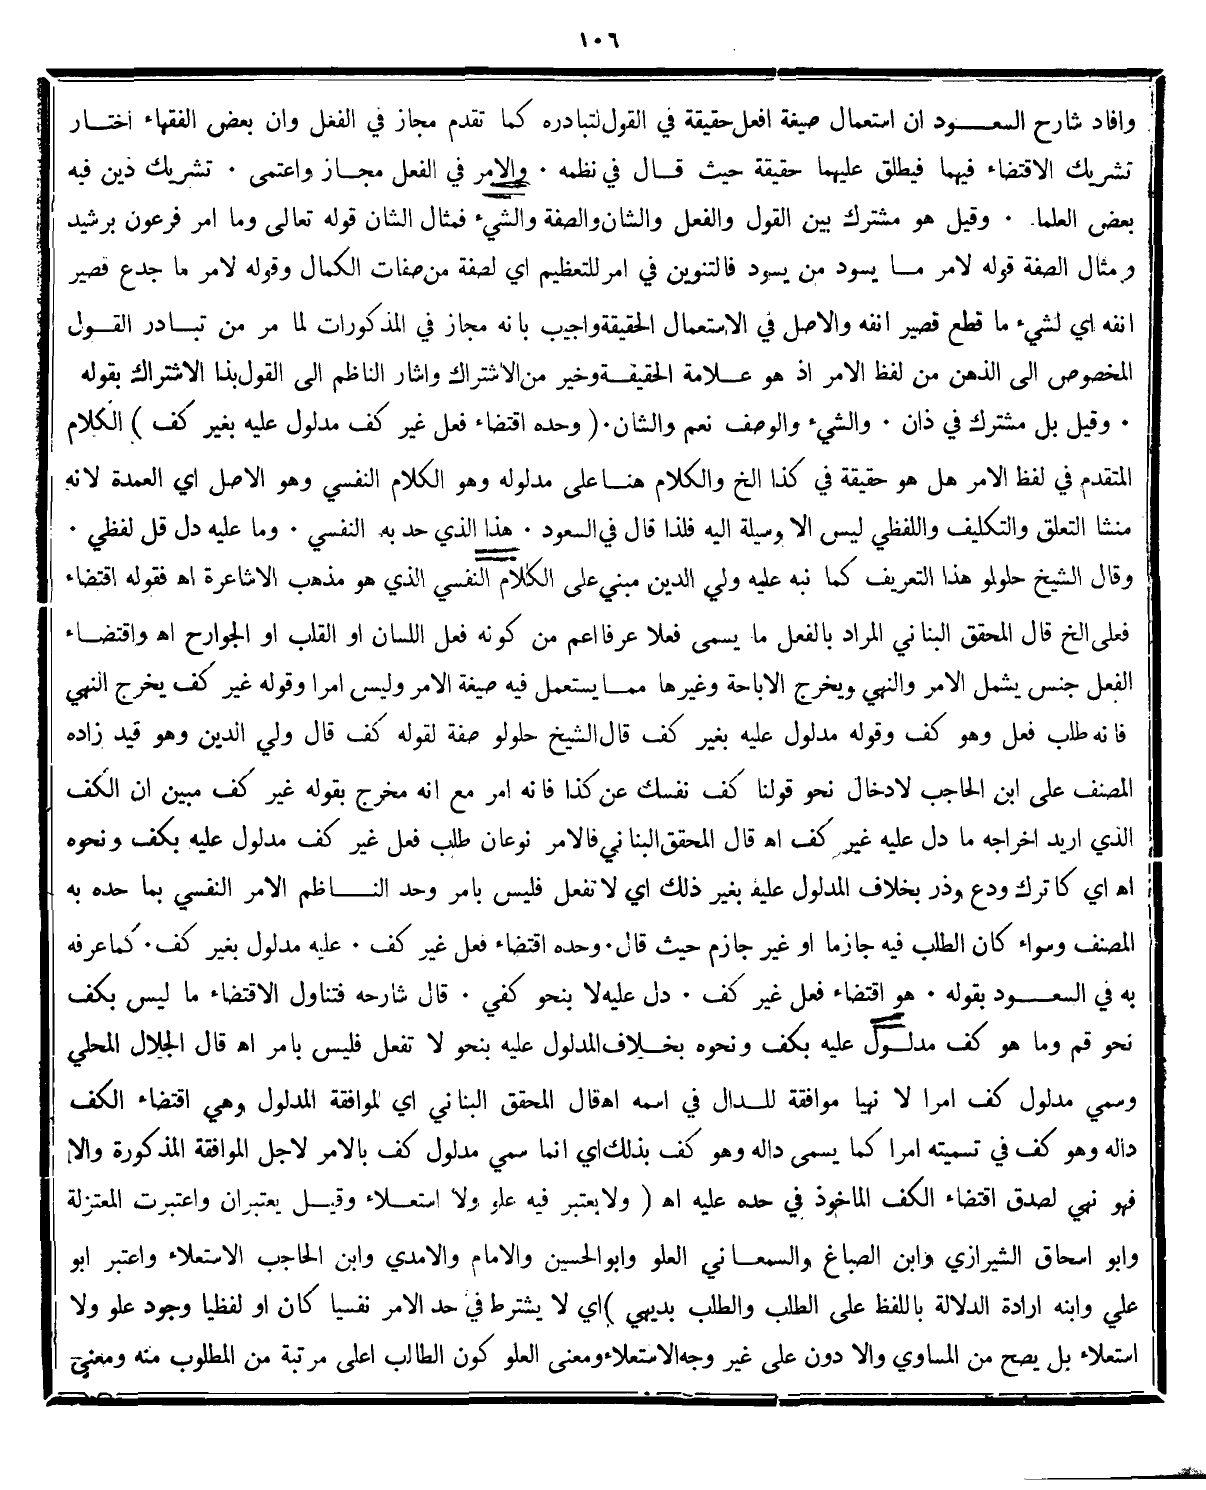 ١٠٦
وافاد شارح السعـــود ان استعمال صيغة افعل حقيقة في القول لتبادره كما تقدم مجاز في الفعل وان بعض الفقهاء اختـــار
تشريك الاقتضاء فيهما فيطلق عليهما حقيقة حيث قـــال في نظمه ٠ والامر في الفعل مجـــاز واعتمى ٠ تشريك ذين فيه
بعض العلما. ٠ وقيل هو مشترك بين القول والفعل والشان والصفة والشيء فمثال الشان قوله تعالى وما امر فرعون برشيد
ومثال الصفة قوله لامر مـــا يسود من يسود فالتنوين في امر للتعظيم اي لصفة من صفات الكمال وقوله لامر ما جدع قصير
انفه اي لشيء ما قطع قصير انفه والاصل في الاستعمال الحقيقة واجيب بانه مجاز في المذكورات لما مر من تبـــادر القـــول
المخصوص الى الذهن من لفظ الامر اذ هو عـــلامة الحقيقـــة وخير من الاشتراك واشار الناظم الى القول بذا الاشتراك بقوله
٠ وقيل بل مشترك في ذان ٠ والشيء والوصف نعم والشان ٠ ( وحده اقتضاء فعل غير كف مدلول عليه بغير كف ) الكلام
المتقدم في لفظ الامر هل هو حقيقة في كذا الخ والكلام هنـــا على مدلوله وهو الكلام النفسي وهو الاصل اي العمدة لانه
منشا التعلق والتكليف واللفظي ليس الا وسيلة اليه فلذا قال في السعود ٠ هذا الذي حد به النفسي ٠ وما عليه دل قل لفظي ٠
وقال الشيخ حلولو هذا التعريف كما نبه عليه ولي الدين مبني على الكلام النفسي الذي هو مذهب الاشاعرة اه فقوله اقتضاء
فعلى الخ قال المحقق البناني المراد بالفعل ما يسمى فعلا عرفا اعم من كونه فعل اللسان او القلب او الجوارح اه واقتضـــاء
الفعل جنس يشمل الامر والنهي ويخرج الاباحة وغيرها ممـــا يستعمل فيه صيغة الامر وليس امرا وقوله غير كف يخرج النهي
فانه طلب فعل وهو كف وقوله مدلول عليه بغير كف قال الشيخ حلولو صفة لقوله كف قال ولي الدين وهو قيد زاده
المصنف على ابن الحاجب لادخال نحو قولنا كف نفسك عن كذا فانه امر مع انه مخرج بقوله غير كف مبين ان الكف
الذي اريد اخراجه ما دل عليه غير كف اه قال المحقق البناني فالامر نوعان طلب فعل غير كف مدلول عليه بكف ونحوه
اه اي كاترك ودع وذر بخلاف المدلول عليه بغير ذلك اي لا تفعل فليس بامر وحد النـــاظم الامر النفسي بما حده به
المصنف وسواء كان الطلب فيه جازما او غير جازم حيث قال ٠ وحده اقتضاء فعل غير كف ٠ عليه مدلول بغير كف ٠ كما عرفه
به في السعـــود بقوله ٠ هو اقتضاء فعل غير كف ٠ دل عليه لا بنحو كفي ٠ قال شارحه فتناول الاقتضاء ما ليس بكف
نحو قم وما هو كف مدلـــول عليه بكف ونحوه بخـــلاف المدلول عليه بنحو لا تفعل فليس بامر اه قال الجلال المحلي
وسمي مدلول كف امرا لا نهيا موافقة للـــدال في اسمه اه قال المحقق البناني اي لموافقة المدلول وهي اقتضاء الكف
داله وهو كف في تسميته امرا كما يسمى داله وهو كف بذلك اي انما سمي مدلول كف بالامر لاجل الموافقة المذكورة والا
فهو نهي لصدق اقتضاء الكف الماخوذ في حده عليه اه ( ولا يعتبر فيه علو ولا استعـــلاء وقيـــل يعتبران واعتبرت المعتزلة
وابو اسحاق الشيرازي وابن الصباغ والسمعـــاني العلو وابو الحسين والامام والامدي وابن الحاجب الاستعلاء واعتبر ابو
علي وابنه ارادة الدلالة باللفظ على الطلب والطلب بديهي ) اي لا يشترط في حد الامر نفسيا كان او لفظيا وجود علو ولا
استعلاء بل يصح من المساوي والا دون على غير وجه الاستعلاء ومعنى العلو كون الطالب اعلى مرتبة من المطلوب منه ومعنى